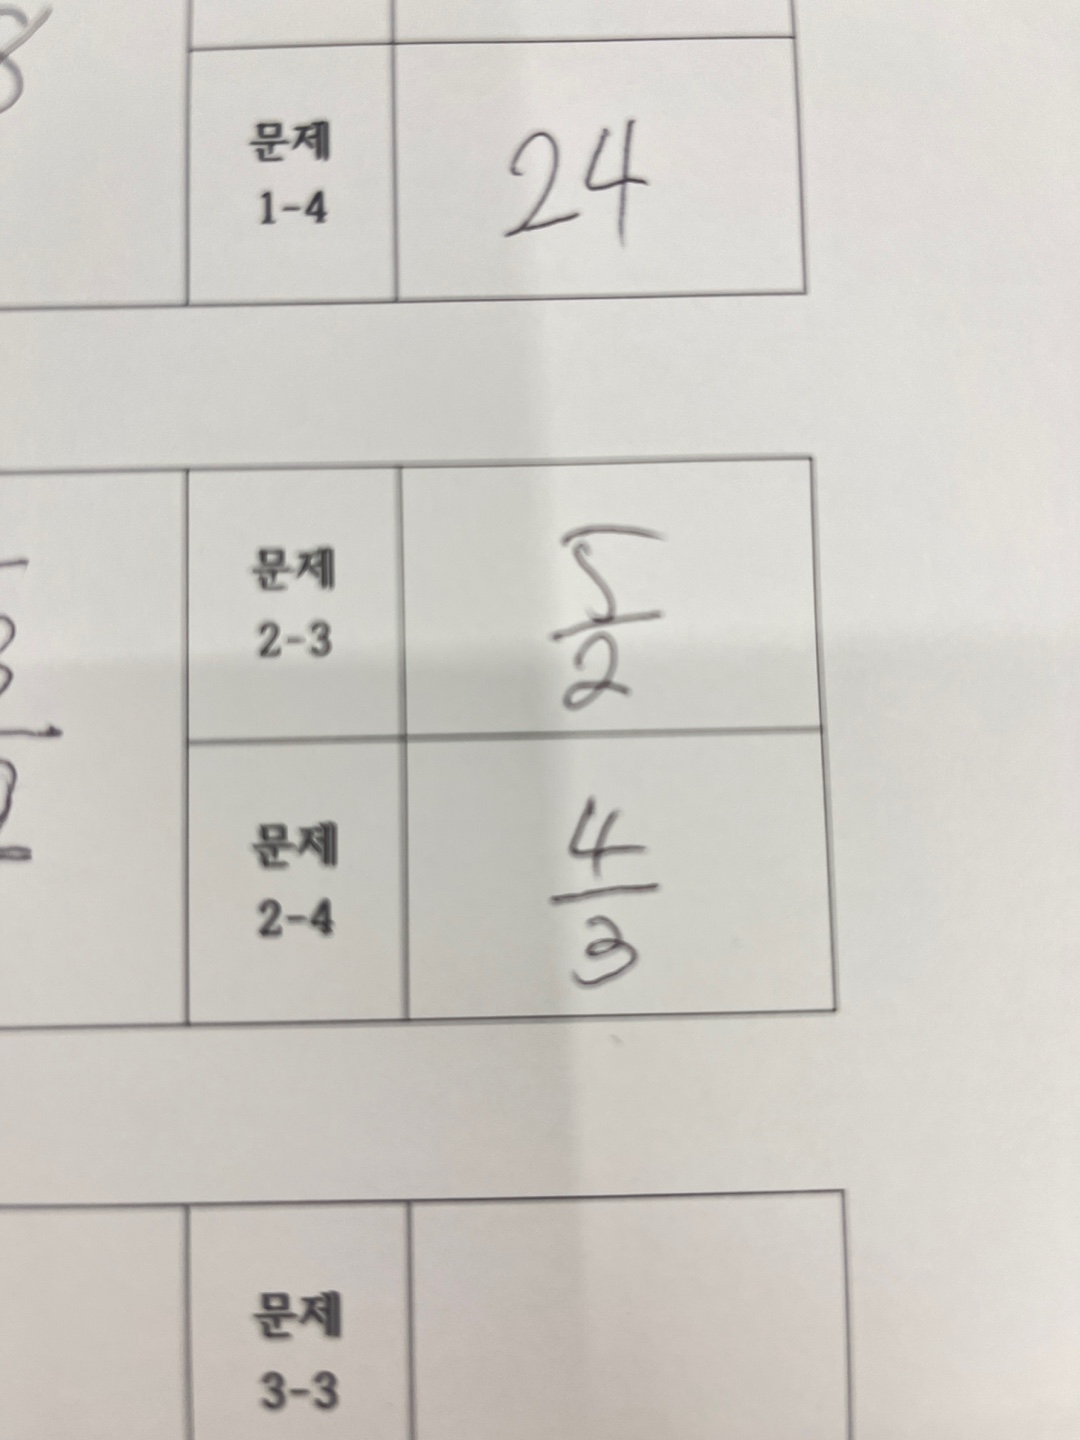 8
문제
1-4
24
문제
2-3
5
2
3
2
문제
2-4
4
3
문제
3-3